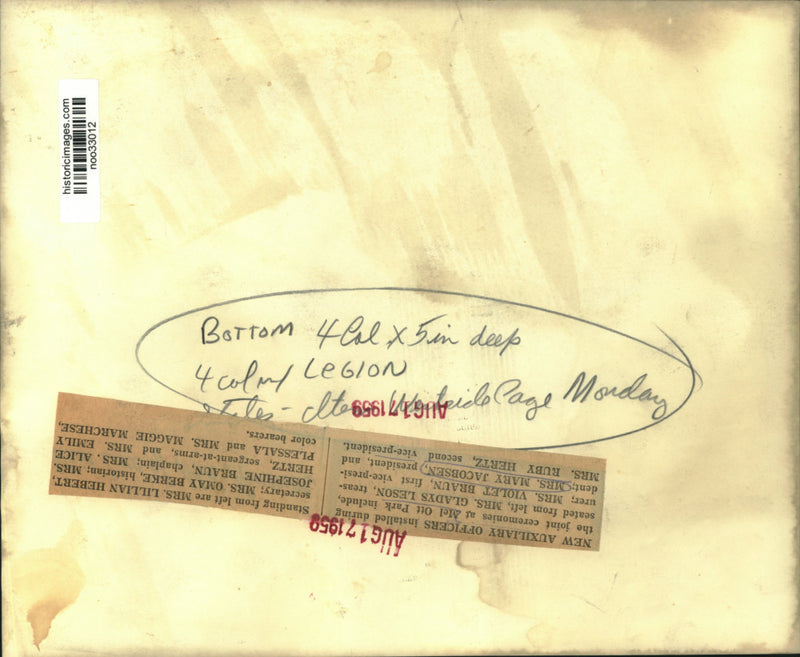 historicimages.com
noo33012
BOTTOM 4 Col X 5 in deep
4 col w/ LEGION
Westside Page Monday
AUG 17 1959
NEW AUXILIARY OFFICERS installed during
the joint ceremonies at Mel Ott Park include,
seated from left, MRS. GLADYS LESON, treas-
urer; MRS. VIOLET BRAUN, first vice-presi-
dent; MRS. MARY JACOBSEN, president, and
MRS. RUBY HERTZ, second vice-president.
Standing from left are MRS. LILLIAN HEBERT,
secretary; MRS. OMAY BERKE, historian; MRS.
JOSEPHINE BRAUN, chaplain; MRS. ALICE
HERTZ, sergeant-at-arms, and MRS. EMILY
PLESSALA and MRS. MAGGIE MARCHESE,
color bearers.
AUG 17 1959